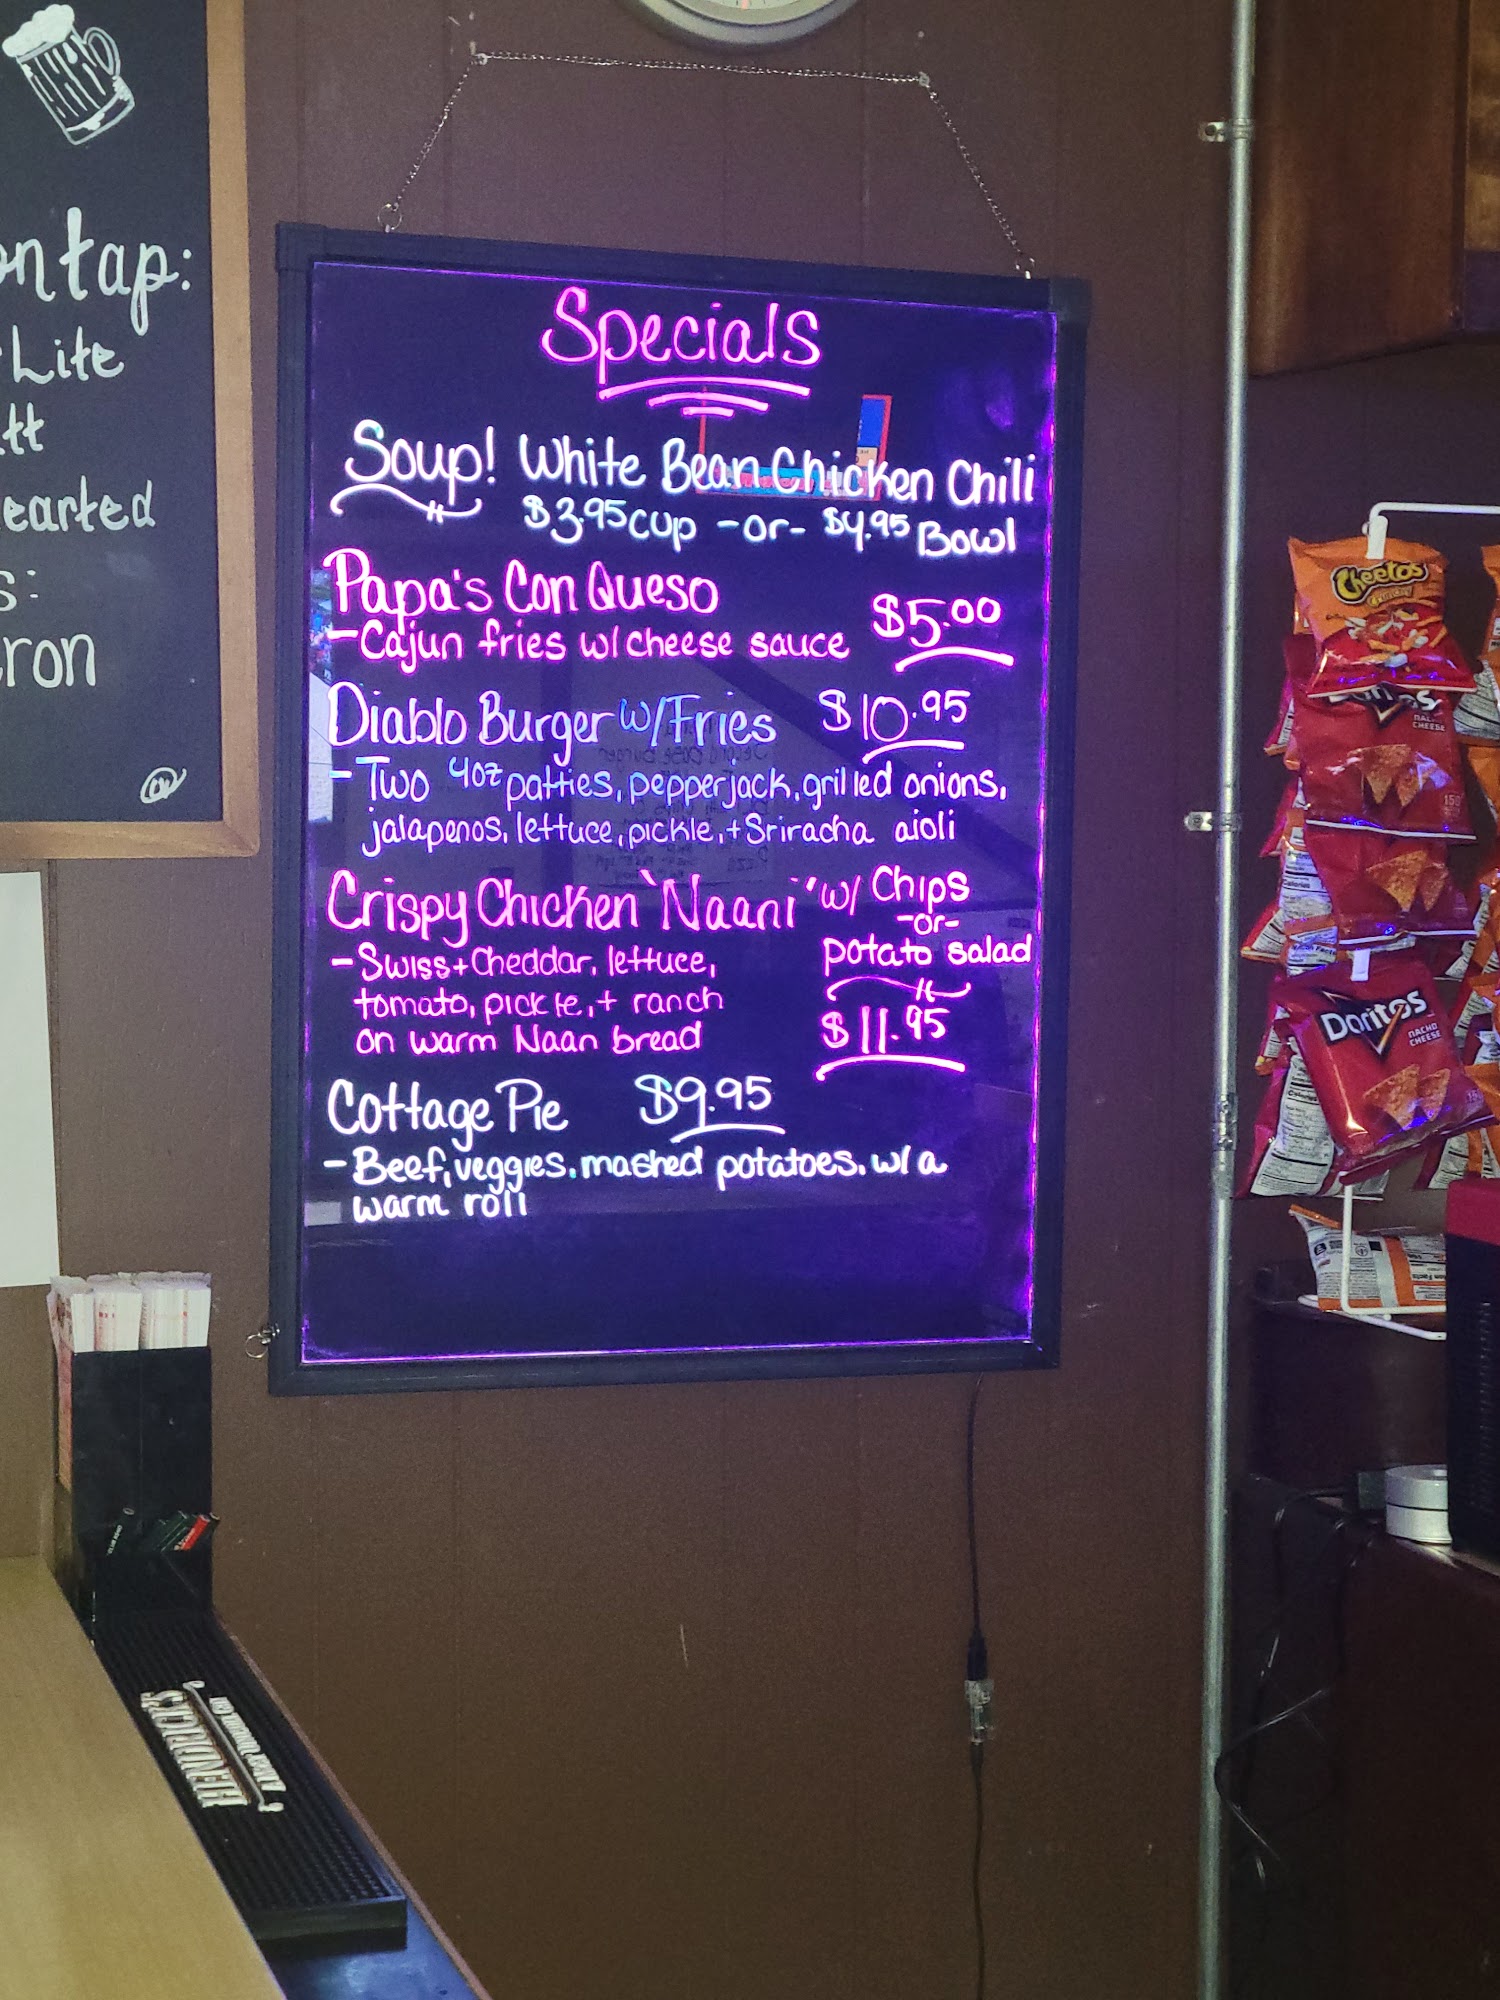 on tap:
Lite
earted
Specials
Soup! White Bean Chicken Chili
$3.95 cup -or- $4.95 Bowl
Papa's Con Queso $5.00
-Cajun fries w/ cheese sauce
Diablo Burger w/ Fries $10.95
-Two 4oz patties, pepperjack, grilled onions,
jalapenos, lettuce, pickle, + Sriracha aioli
Crispy Chicken 'Naani' w/ Chips
-or-
potato salad
-Swiss + Cheddar, lettuce,
tomato, pickle, + ranch
on warm Naan bread
$11.95
Cottage Pie $9.95
-Beef, veggies, mashed potatoes, w/ a
warm roll
Cheetos
Crunchy
Doritos
NACHO
CHEESE
HENDRICK'S